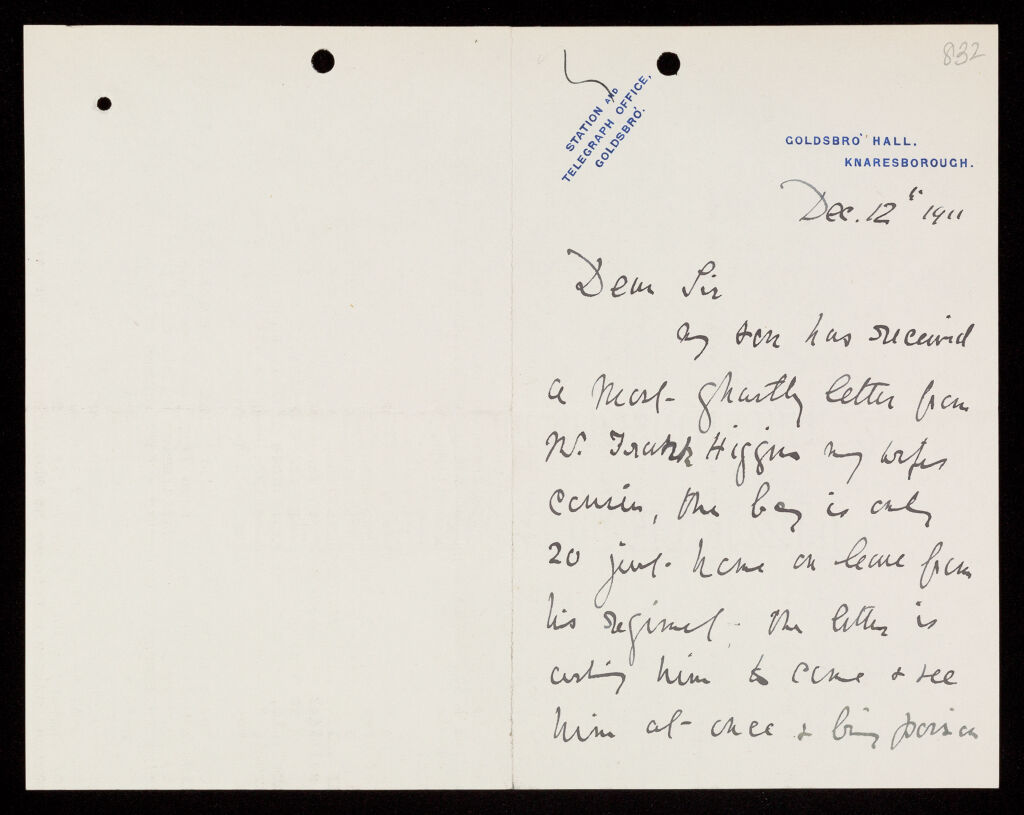 832
STATION AND
TELEGRAPH OFFICE,
GOLDSBRO'.
GOLDSBRO' HALL,
KNARESBOROUGH.
Dec. 12th 1911
Dear Sir
my son has received
a most ghastly letter from
Mr. Frank Higgins my wifes
cousin, the boy is only
20 just home on leave from
his regiment. The letter is
asking him to come & see
him at once & bring poison